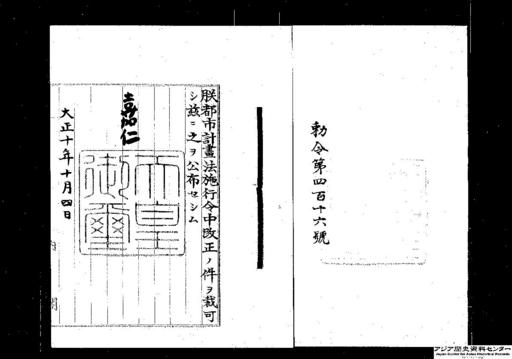 勅令第四百十六號
朕都市計畫法施行令中改正ノ件ヲ裁可
シ茲ニ之ヲ公布セシム
嘉仁
天皇御璽
大正十年十月四日
アジア歴史資料センター
Japan Center for Asian Historical Records